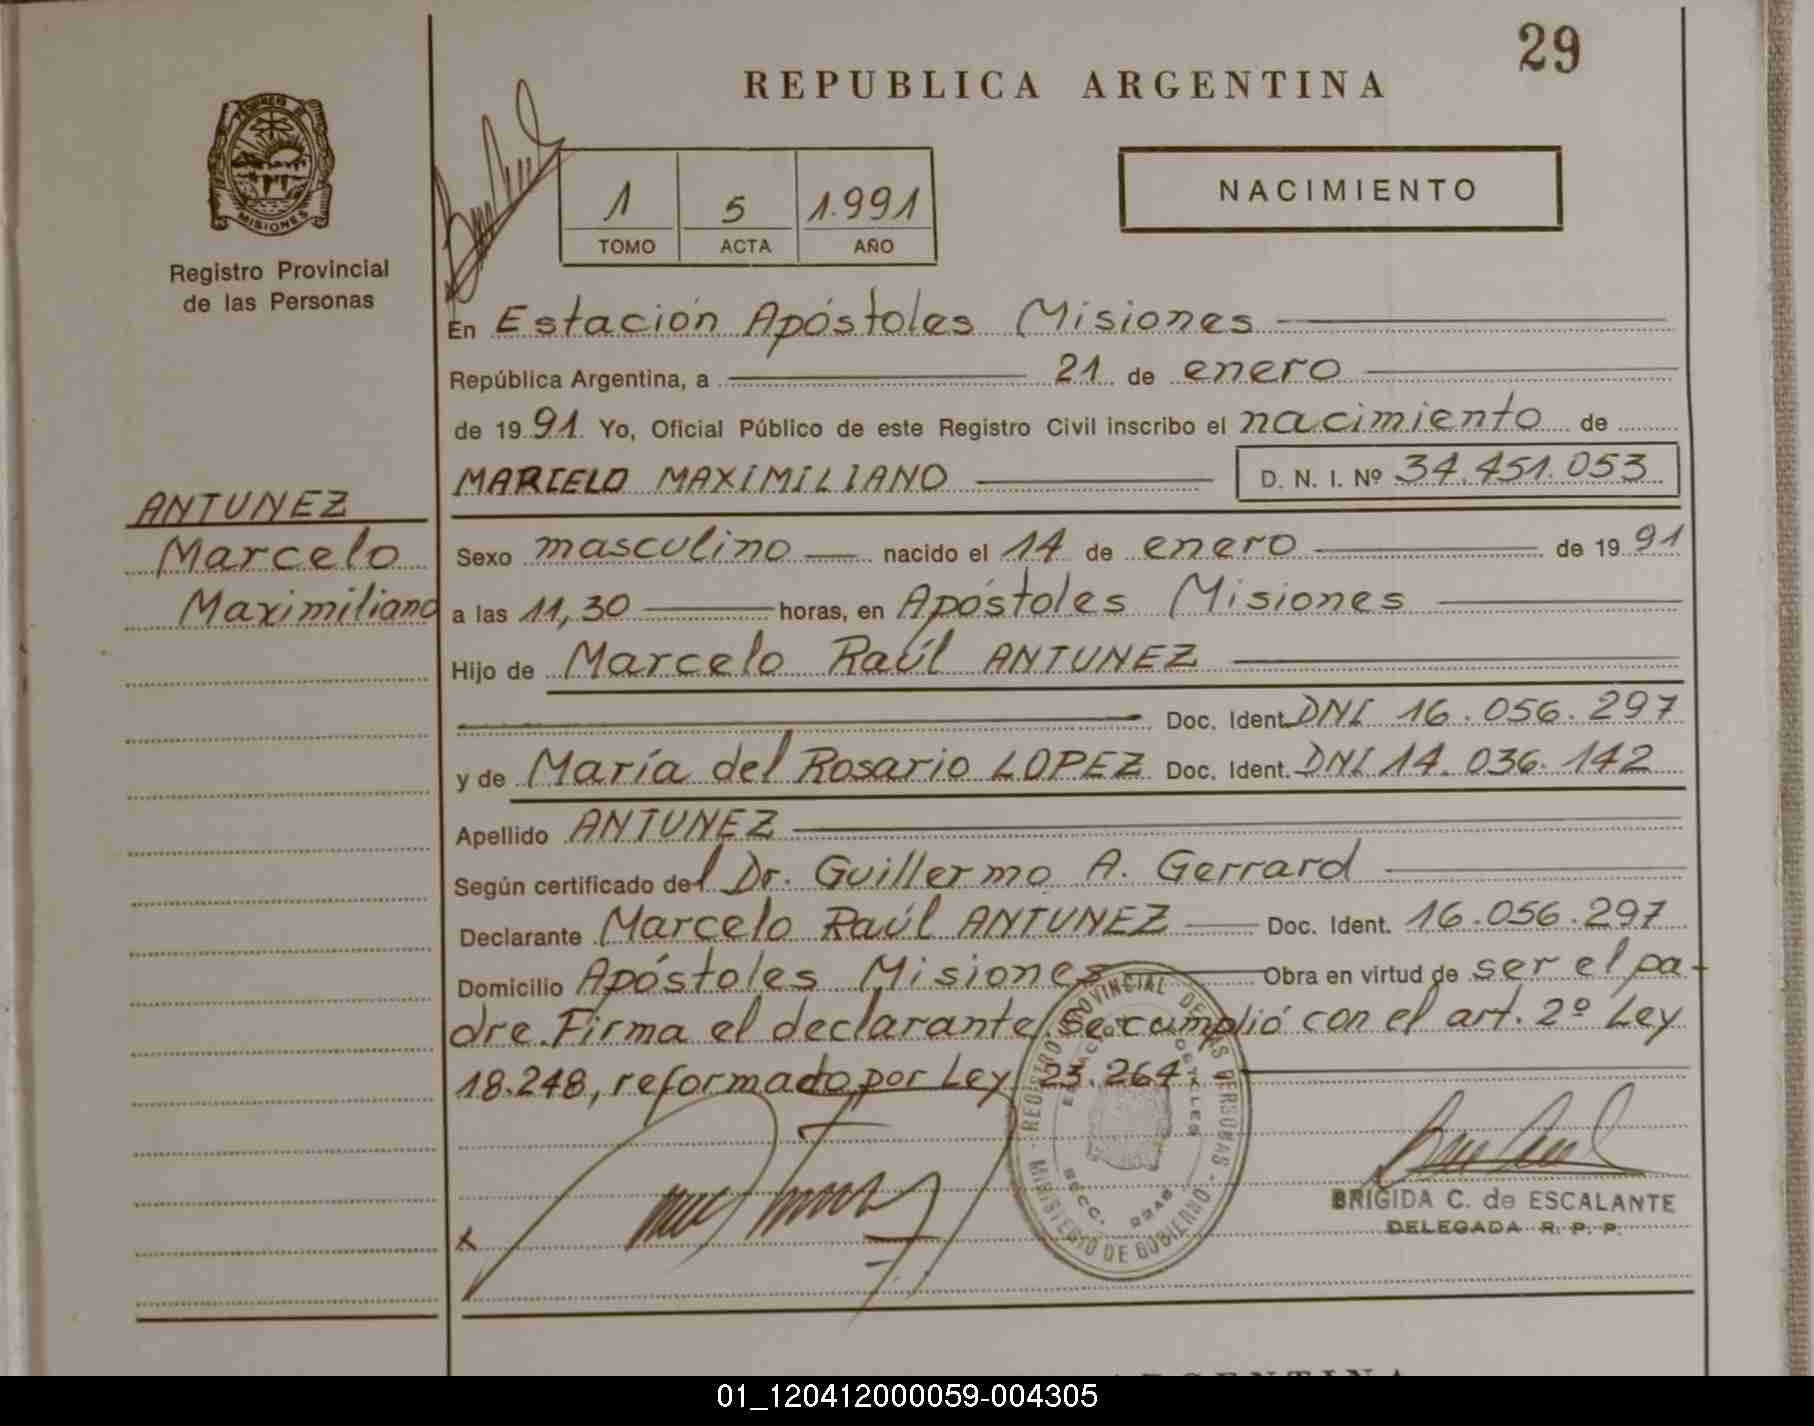 29
REPUBLICA ARGENTINA
NACIMIENTO
1 5 1.991
TOMO ACTA AÑO
MISIONES
Registro Provincial
de las Personas
En Estación Apóstoles Misiones
República Argentina, a 21 de enero
de 1991. Yo, Oficial Público de este Registro Civil inscribo el nacimiento de
MARCELO MAXIMILIANO D. N. I. Nº 34.451.053
ANTUNEZ
Marcelo
Maximiliano
Sexo masculino nacido el 14 de enero de 1991
a las 11,30 horas, en Apóstoles Misiones
Hijo de Marcelo Raúl ANTUNEZ
Doc. Ident. DNI 16.056.297
y de María del Rosario LOPEZ Doc. Ident. DNI 14.036.142
Apellido ANTUNEZ
Según certificado del Dr. Guillermo A. Gerrard
Declarante Marcelo Raúl ANTUNEZ Doc. Ident. 16.056.297
Domicilio Apóstoles Misiones Obra en virtud de ser el pa-
dre. Firma el declarante. Se cumplió con el art. 2º Ley
18.248, reformado por Ley 23.264
REGISTRO PROVINCIAL DE LAS PERSONAS
MINISTERIO DE GOBIERNO
BRIGIDA C. de ESCALANTE
DELEGADA R. P. P.
ARGENTINA
01_120412000059-004305